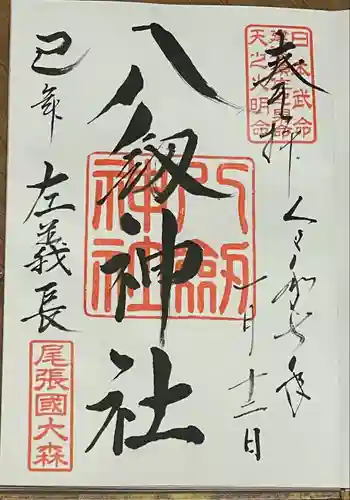 奉拝
日本武命
天之火明命
令和七年
一月十二日
八剱神社
八剱神社
巳年
左義長
尾張國大森